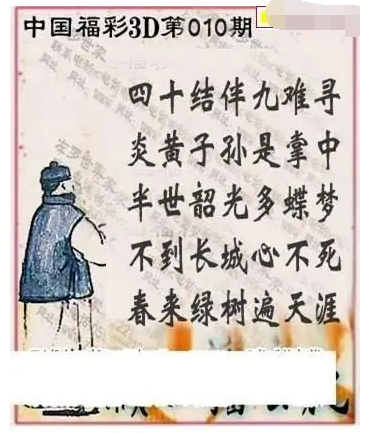 中国福彩3D第010期
四十结伴九难寻
炎黄子孙是掌中
半世韶光多蝶梦
不到长城心不死
春来绿树遍天涯